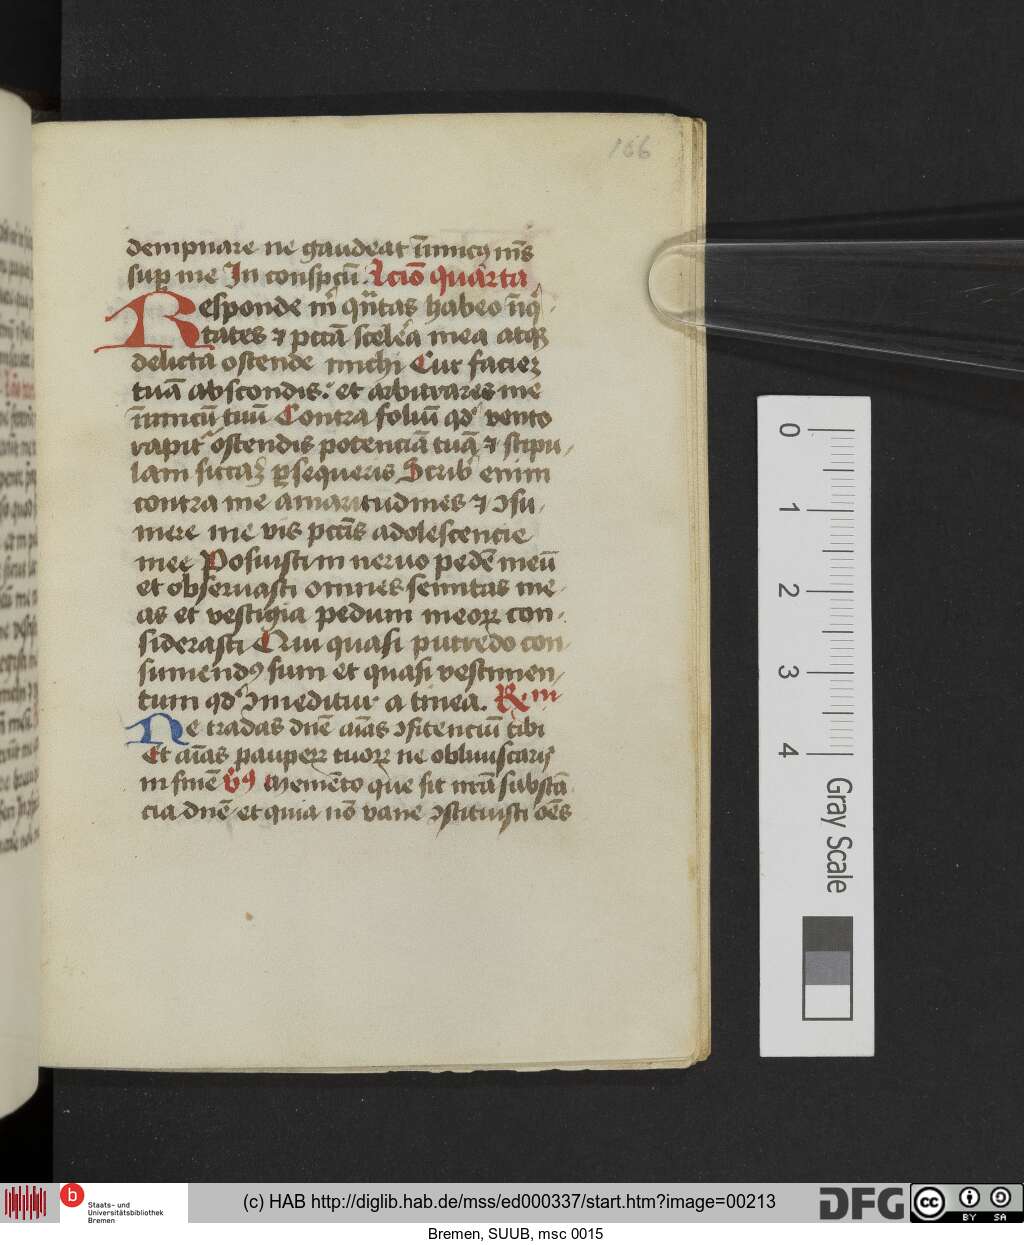 106
dempnare ne gaudeat inimicꝰ me᷒
suꝑ me In conspc̄u. Lcīo quarta
Responde m̄ qn̄tas habeo in̄q̄
tates ⁊ pctā scelera mea atqꝫ
delicta ostende michi Cur faciez
tuā abscondis: et arbitraris me
inimicū tuū Contra foliū qd̓ vento
rapit̓ ostendis potenciā tuā ⁊ stipu-
lam siccaꝫ ꝑsequeris Scribˢ enim
contra me amaritudines ⁊ ↄsu-
mere me vis pctis adolescencie
mee Posuisti in neruo pedē meū
et obseruasti omnes semitas me-
as et vestigia pedum meoꝝ con-
siderasti Qui quasi putredo con-
sumendꝰ sum et quasi vestimen-
tum qd̓ ↄmeditur a tinea. R. m
Ne tradas dn̄e aīas ↄfitenciū tibi
Et aīas paupeꝝ tuoꝝ ne obliuiscaris
in finē v̄ꝰ Memēto que sit mēa substā
cia dn̄e et quia nō vane ↄstituisti oēs
0
1
2
3
4
Gray Scale
b
Staats- und
Universitätsbibliothek
Bremen
(c) HAB http://diglib.hab.de/mss/ed000337/start.htm?image=00213
DFG
cc
BY SA
Bremen, SUUB, msc 0015